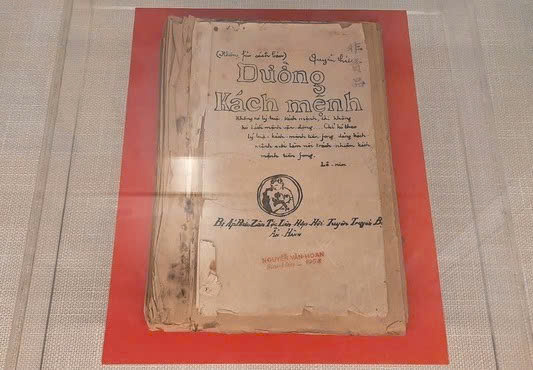 Quyển thứ
Đường
Kách mệnh
Không có lý luận kách mệnh, thì không
có kách mệnh vận động... Chỉ có theo
lý luận kách mệnh tiền fong, đảng kách
mệnh mới làm nổi trách nhiệm kách
mệnh tiền fong.
Lê-nin
Bị Áp Bức Zân Tộc Liên Hợp Hội Tuyên Truyền Bộ
Ấn Hành
NGUYỄN VĂN HOAN